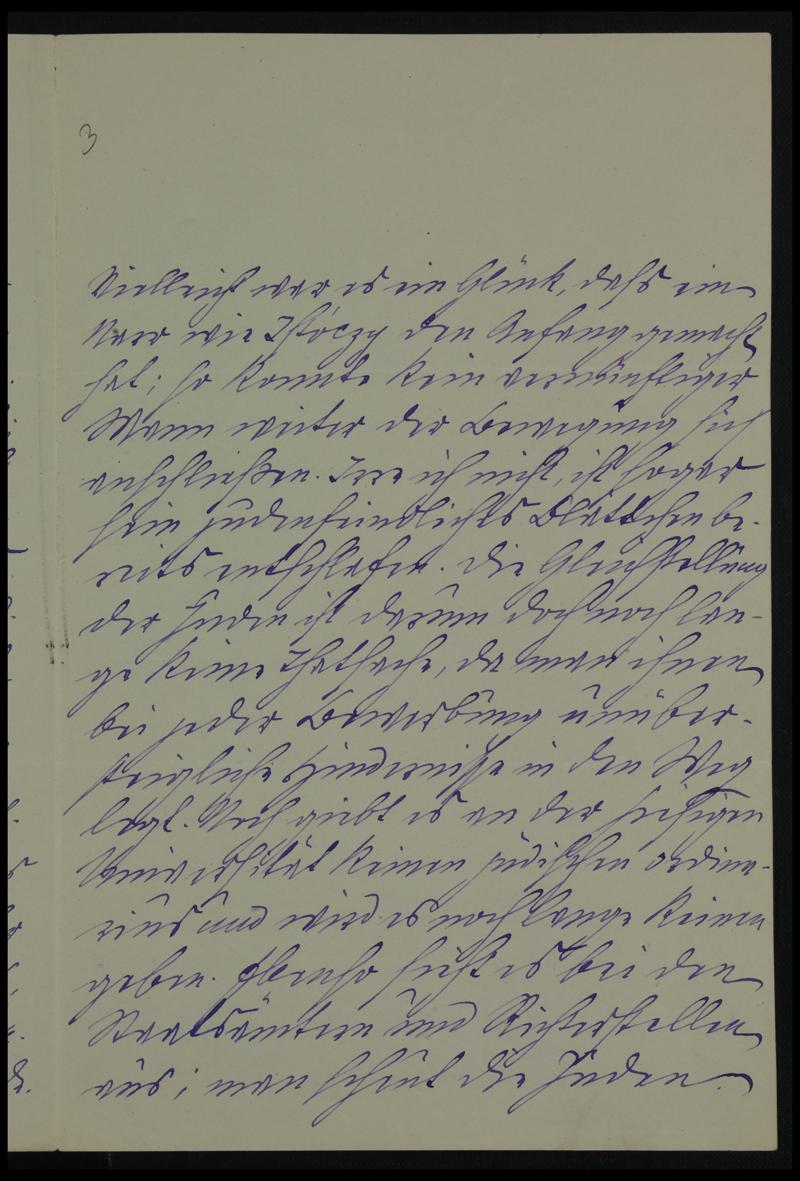 3
Vielleicht war es ein Glück, daß ein
Narr wie Istóczy den Anfang gemacht
hat; so konnte kein vernünftiger
Mann weiter der Bewegung sich
anschließen. Irre ich nicht, ist sogar
sein judenfeindliches Blättchen be-
reits entschlafen. Die Gleichstellung
der Juden ist darum doch noch lan-
ge keine Thatsache, da man ihnen
bei jeder Bewerbung unüber-
steigliche Hindernisse in den Weg
legt. Noch giebt es an der hiesigen
Universität keinen jüdischen Ordina-
rius und wird es noch lange keinen
geben. Ebenso sieht es bei den
Staatsämtern und Richterstellen
aus; man scheut die Juden.